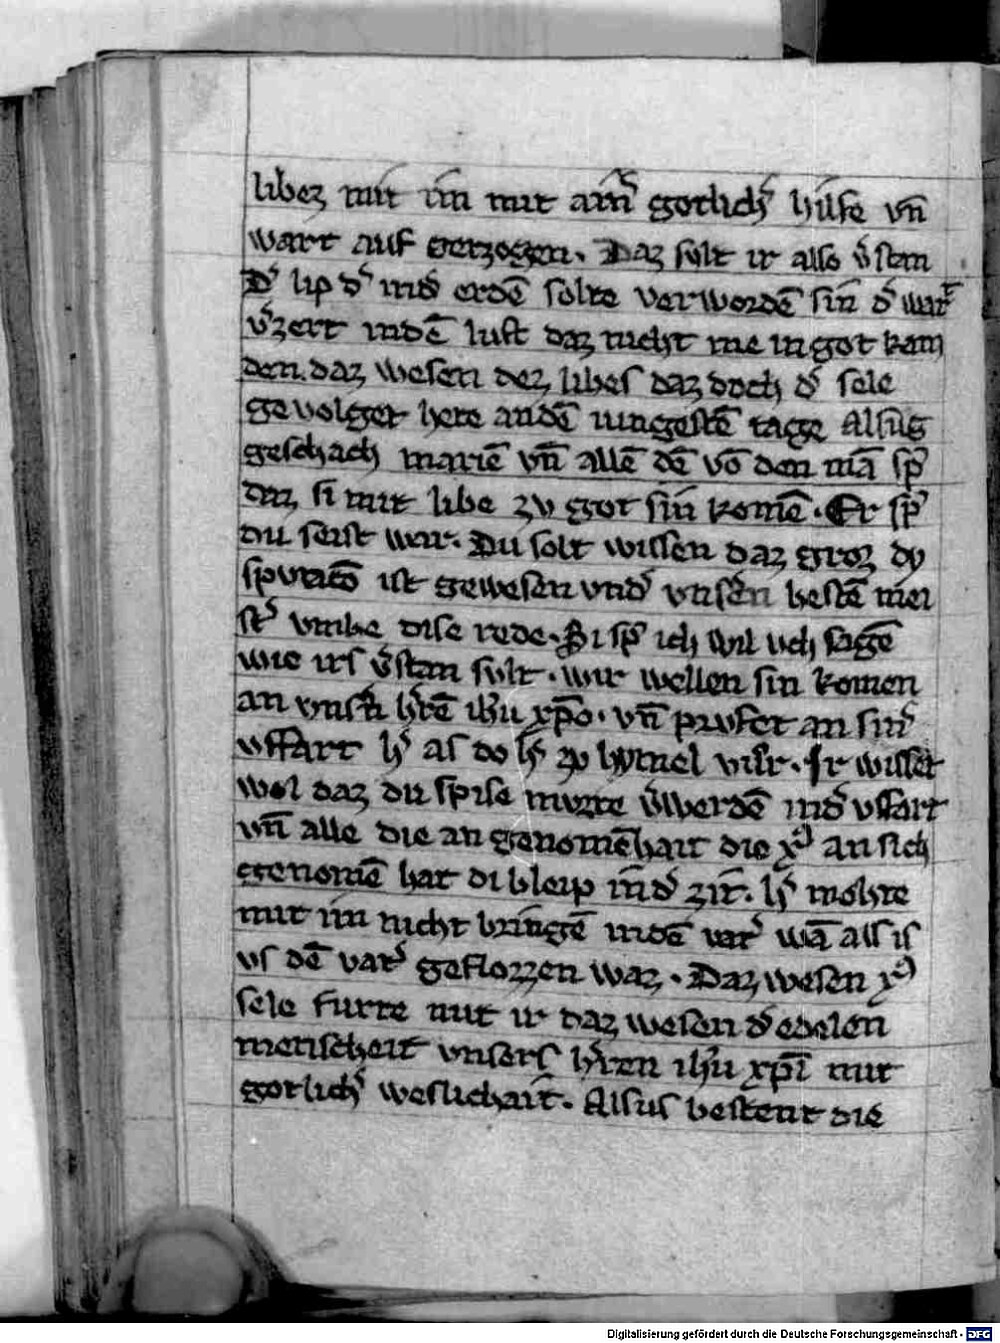 libez mit im mit ainē gotlichē hilfe vn̄
wart auf gerzogen. Daz sult ir also v̄stan
Dē lip dē indē erdē solte verwordē sin dē wart
v̄zert indē lust daz nicht me in got kam
den. daz wesen dez libes daz doch dē sele
gevolget hete andē iungestē tage Alsus
geschach mariē vn̄ allē dē vō den mā sp̄
daz si mit libe zv got sin komē. Er sp̄
du seist war. Du solt wissen daz groz dy
sputacō ist gewesen vndē vnsēn bestē mei
stē vmbe dise rede. Si sp̄ ich wil uch sagē
wie irs v̄stan sult. wir wellen sin komen
an vnsn̄ hr̄ē ihū xp̄o. vn̄ prufet an sinē
vffart hē as do hē zv hymel vur. Ir wisset
wol daz du spise muzte v̄werdē indē vffart
vn̄ alle die an genomēhait die x᷒ an sich
genomē hat di bleip in dē zit. hē mohte
mit im nicht bringē indē vatē wā als is
vs dē vatē geflozzen waz. Daz wesen x᷒
sele furte mit ir daz wesen dē edelen
menscheit vnsers hr̄en ihū xp̄i mit
gotlichē weslichait. Alsus bestent die
Digitalisierung gefördert durch die Deutsche Forschungsgemeinschaft - DFG